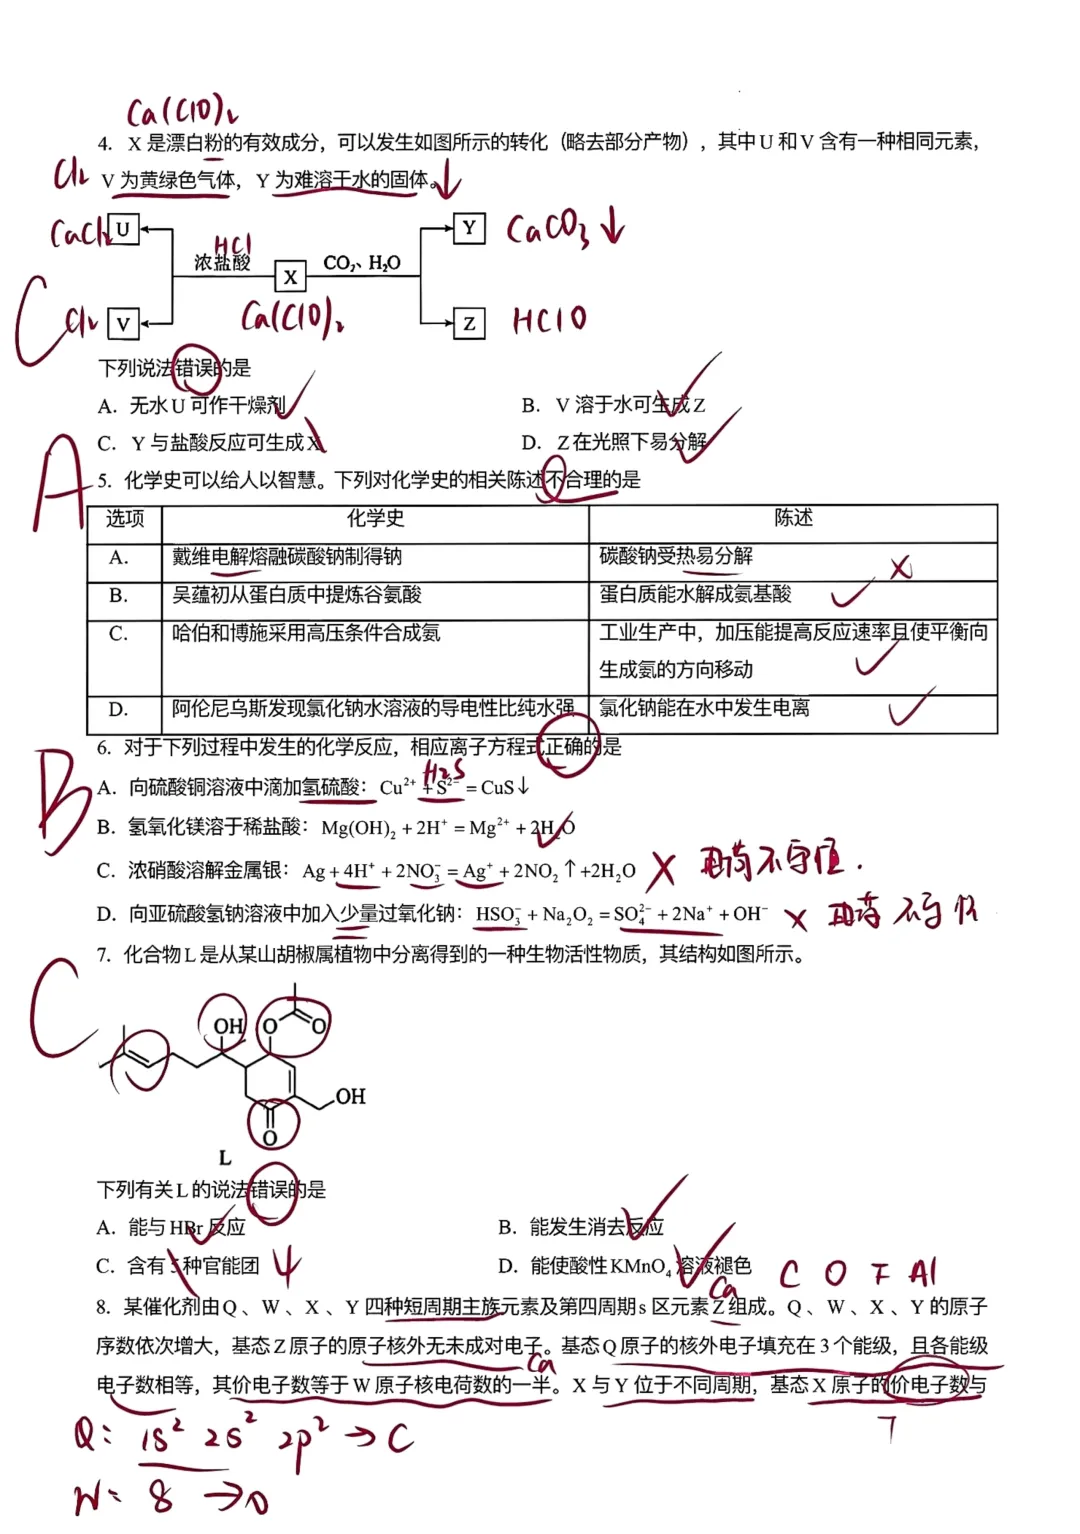 Ca(ClO)₂
4. X 是漂白粉的有效成分，可以发生如图所示的转化（略去部分产物），其中 U 和 V 含有一种相同元素，
Cl₂ V 为黄绿色气体，Y 为难溶于水的固体。↓
CaCl₂ U Y CaCO₃↓
HCl
浓盐酸 X CO₂、H₂O
Cl₂ V Ca(ClO)₂ Z HClO
C
下列说法错误的是
A. 无水 U 可作干燥剂 B. V 溶于水可生成 Z
C. Y 与盐酸反应可生成 X D. Z 在光照下易分解
A
5. 化学史可以给人以智慧。下列对化学史的相关陈述不合理的是
选项 化学史 陈述
A. 戴维电解熔融碳酸钠制得钠 碳酸钠受热易分解 ×
B. 吴蕴初从蛋白质中提炼谷氨酸 蛋白质能水解成氨基酸
C. 哈伯和博施采用高压条件合成氨 工业生产中，加压能提高反应速率且使平衡向
生成氨的方向移动
D. 阿伦尼乌斯发现氯化钠水溶液的导电性比纯水强 氯化钠能在水中发生电离
6. 对于下列过程中发生的化学反应，相应离子方程式正确的是
H₂S
B
A. 向硫酸铜溶液中滴加氢硫酸：Cu²⁺ + S²⁻ = CuS↓
B. 氢氧化镁溶于稀盐酸：Mg(OH)₂ + 2H⁺ = Mg²⁺ + 2H₂O
C. 浓硝酸溶解金属银：Ag + 4H⁺ + 2NO₃⁻ = Ag⁺ + 2NO₂↑+2H₂O × 电荷不守恒.
D. 向亚硫酸氢钠溶液中加入少量过氧化钠：HSO₃⁻ + Na₂O₂ = SO₄²⁻ + 2Na⁺ + OH⁻ × 电荷不守恒
7. 化合物 L 是从某山胡椒属植物中分离得到的一种生物活性物质，其结构如图所示。
C
OH O O
OH
O
L
下列有关 L 的说法错误的是
A. 能与 HBr 反应 B. 能发生消去反应
C. 含有 5 种官能团 4 D. 能使酸性 KMnO₄ 溶液褪色
Ca C O F Al
8. 某催化剂由 Q、W、X、Y 四种短周期主族元素及第四周期 s 区元素 Z 组成。Q、W、X、Y 的原子
序数依次增大，基态 Z 原子的原子核外无未成对电子。基态 Q 原子的核外电子填充在 3 个能级，且各能级
Ca
电子数相等，其价电子数等于 W 原子核电荷数的一半。X 与 Y 位于不同周期，基态 X 原子的价电子数与
7
Q: 1s² 2s² 2p² → C
W: 8 → O